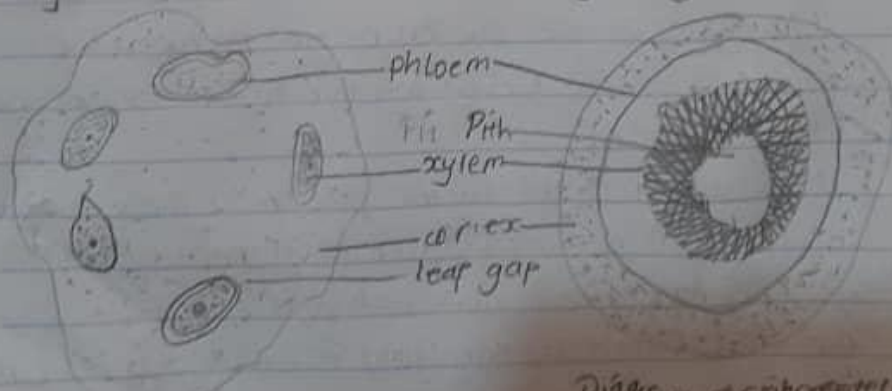 phloem
Pith
xylem
cortex
leap gap